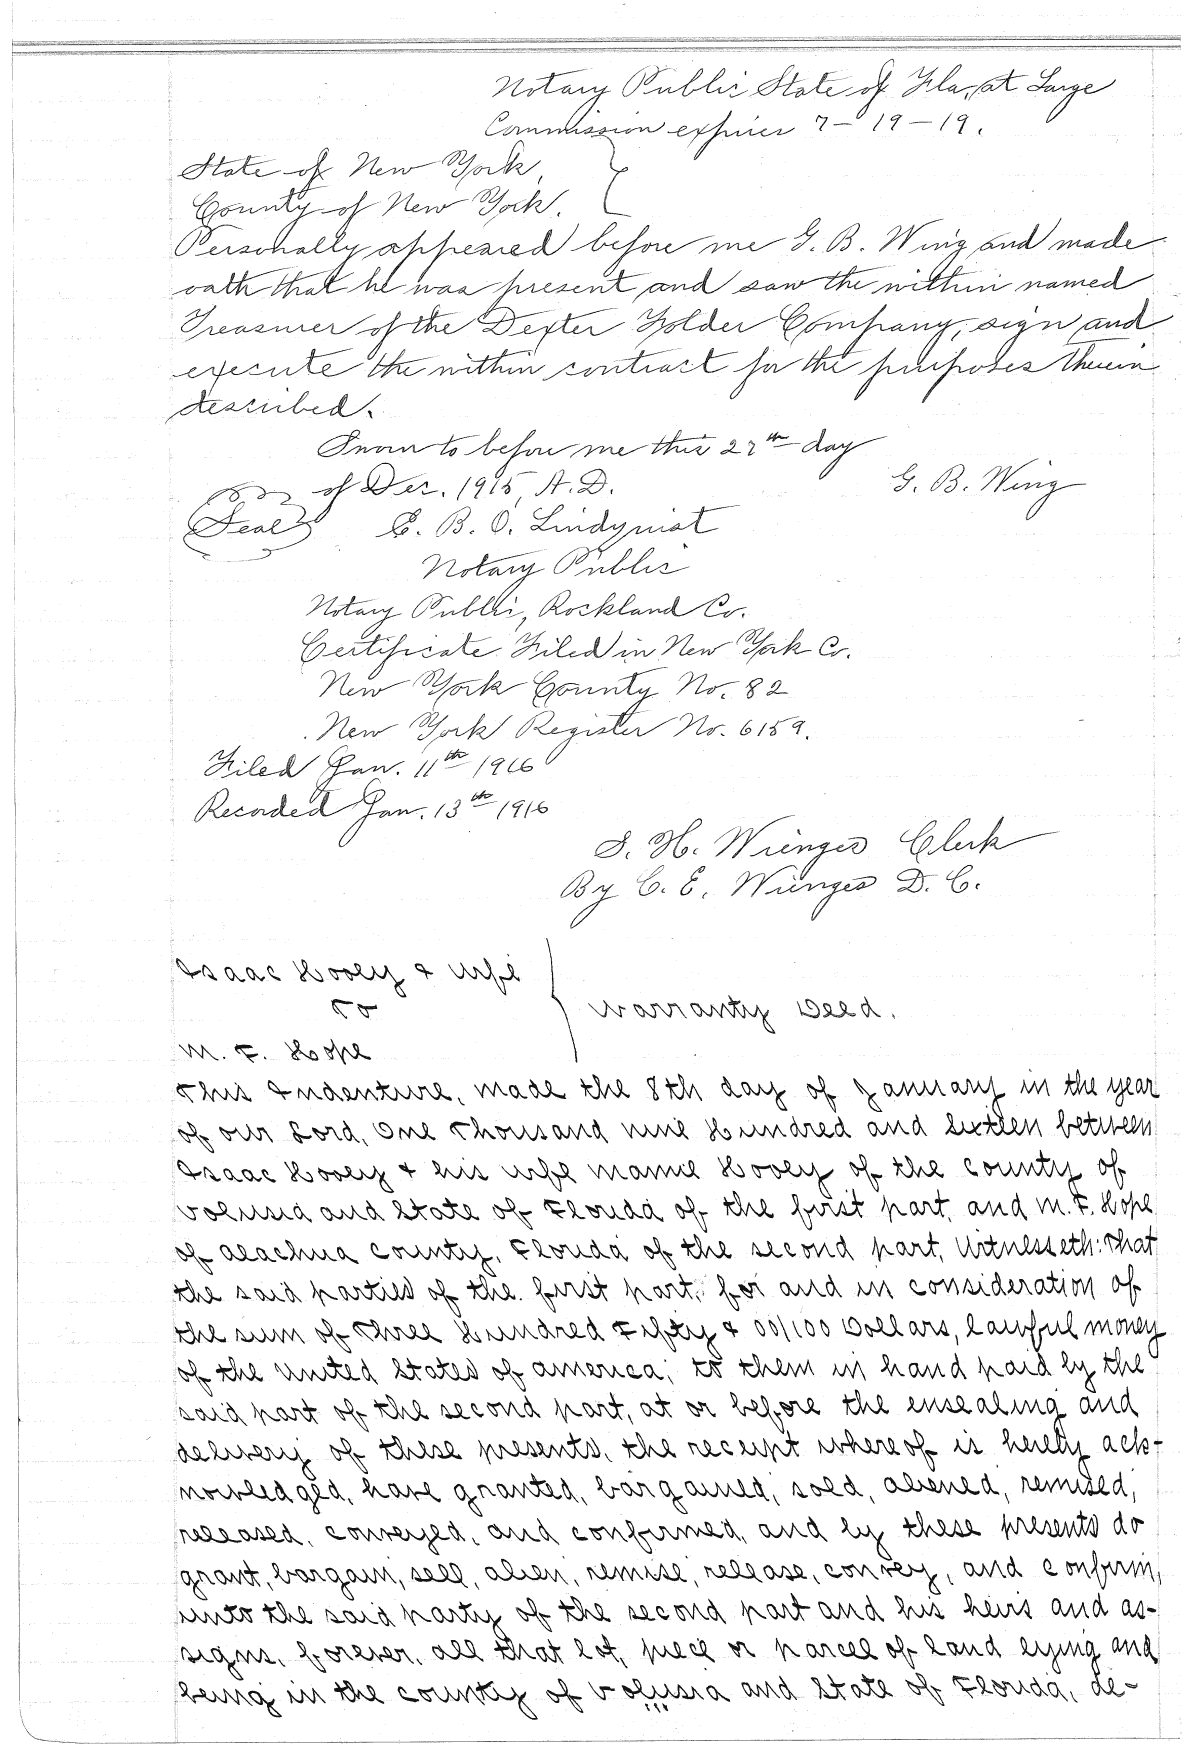 Notary Public State of Fla, at Large
Commission expires 7-19-19.
State of New York,
County of New York.
Personally appeared before me G. B. Wing and made
oath that he was present and saw the within named
Treasurer of the Dexter Folder Company, sign and
execute the within contract for the purposes therein
described.
Sworn to before me this 27th day
of Dec. 1915, A.D. G. B. Wing
Seal E. B. O. Lindquist
Notary Public
Notary Public, Rockland Co.
Certificate Filed in New York Co.
New York County No. 82
New York Register No. 6159.
Filed Jan. 11th 1916
Recorded Jan. 13th 1916
S. H. Wienges Clerk
By C. E. Wienges D. C.
Isaac Hovey & wife
To
Warranty Deed.
M. F. Hope
This Indenture, made the 8th day of January in the year
of our Lord, One Thousand nine Hundred and Sixteen between
Isaac Hovey & his wife Mamie Hovey of the county of
Volusia and State of Florida of the first part, and M. F. Hope
of Alachua County, Florida of the second part, Witnesseth: That
the said parties of the first part, for and in consideration of
the sum of Three Hundred Fifty & 00/100 Dollars, lawful money
of the United States of America, to them in hand paid by the
said part of the second part, at or before the ensealing and
delivery of these presents, the receipt whereof is hereby ack-
nowledged, have granted, bargained, sold, aliened, remised,
released, conveyed, and confirmed, and by these presents do
grant, bargain, sell, alien, remise, release, convey, and confirm,
unto the said party of the second part and his heirs and as-
signs, forever, all that lot, piece or parcel of land lying and
being in the county of Volusia and State of Florida, de-